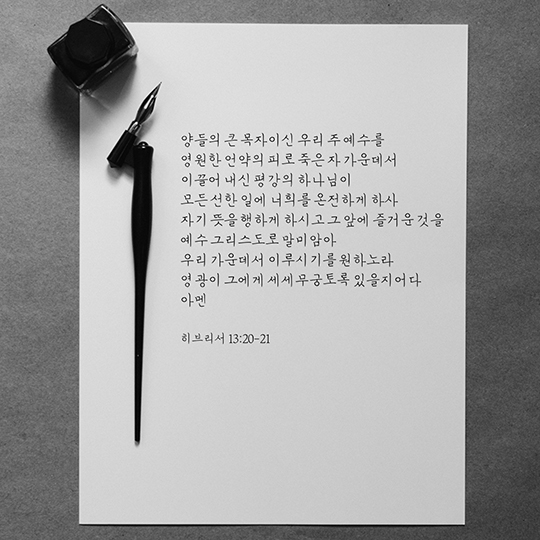 양들의 큰 목자이신 우리 주 예수를
영원한 언약의 피로 죽은 자 가운데서
이끌어 내신 평강의 하나님이
모든 선한 일에 너희를 온전하게 하사
자기 뜻을 행하게 하시고 그 앞에 즐거운 것을
예수 그리스도로 말미암아
우리 가운데서 이루시기를 원하노라
영광이 그에게 세세무궁토록 있을지어다
아멘
히브리서 13:20-21